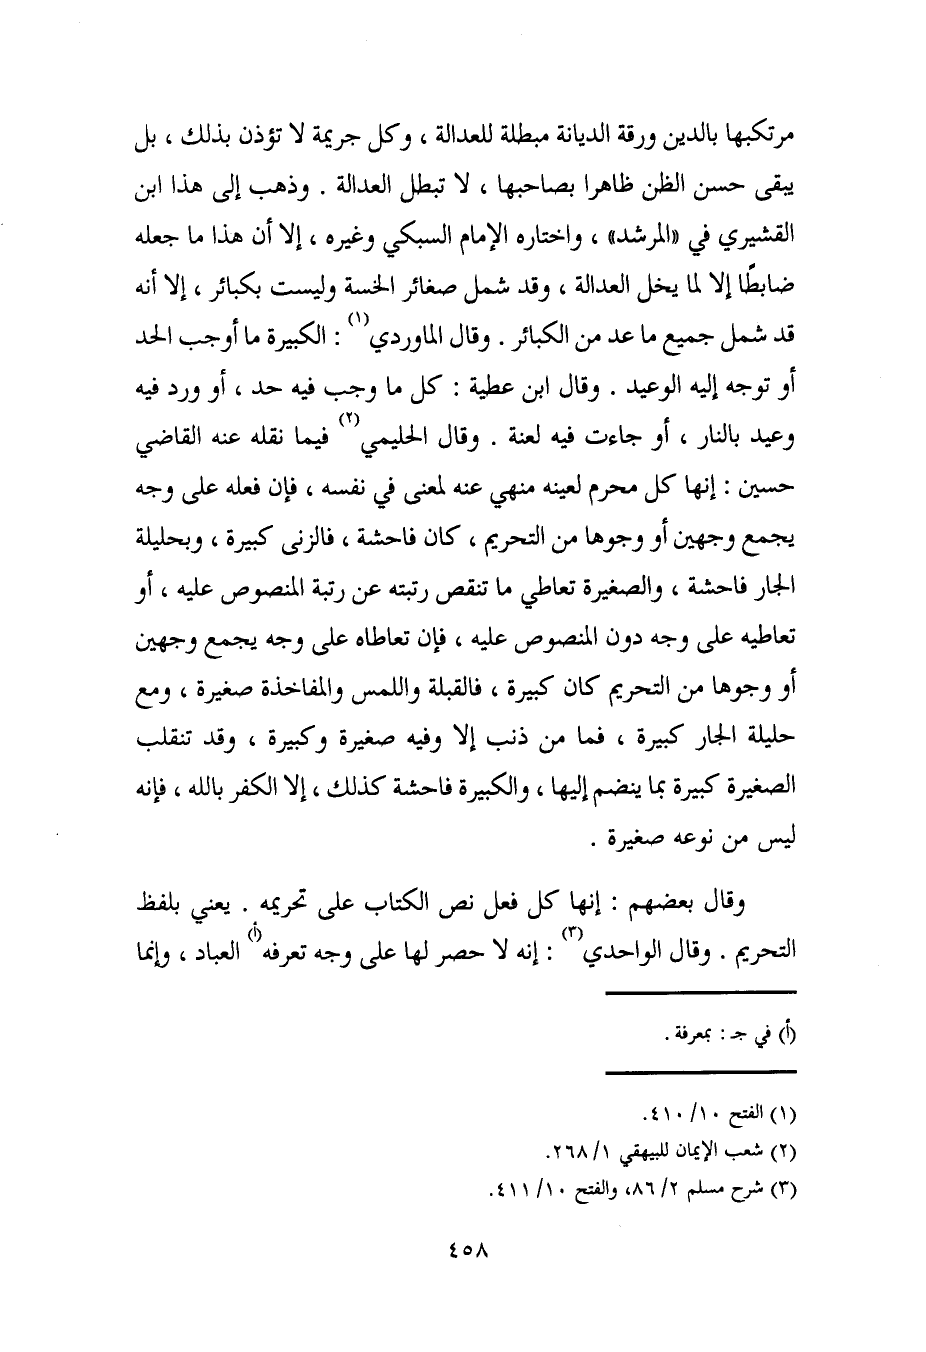 مرتكبها بالدين ورقة الديانة مبطلة للعدالة ، وكل جريمة لا تؤذن بذلك ، بل
يبقى حسن الظن ظاهرا بصاحبها ، لا تبطل العدالة . وذهب إلى هذا ابن
القشيري في «المرشد» ، واختاره الإمام السبكي وغيره ، إلا أن هذا ما جعله
ضابطًا إلا لما يخل العدالة ، وقد شمل صغائر الخسة وليست بكبائر ، إلا أنه
قد شمل جميع ما عد من الكبائر . وقال الماوردي(١) : الكبيرة ما أوجب الحد
أو توجه إليه الوعيد . وقال ابن عطية : كل ما وجب فيه حد ، أو ورد فيه
وعيد بالنار ، أو جاءت فيه لعنة . وقال الحليمي(٢) فيما نقله عنه القاضي
حسين : إنها كل محرم لعينه منهي عنه لمعنى في نفسه ، فإن فعله على وجه
يجمع وجهين أو وجوها من التحريم ، كان فاحشة ، فالزنى كبيرة ، وبحليلة
الجار فاحشة ، والصغيرة تعاطي ما تنقص رتبته عن رتبة المنصوص عليه ، أو
تعاطيه على وجه دون المنصوص عليه ، فإن تعاطاه على وجه يجمع وجهين
أو وجوها من التحريم كان كبيرة ، فالقبلة واللمس والمفاخذة صغيرة ، ومع
حليلة الجار كبيرة ، فما من ذنب إلا وفيه صغيرة وكبيرة ، وقد تنقلب
الصغيرة كبيرة بما ينضم إليها ، والكبيرة فاحشة كذلك ، إلا الكفر بالله ، فإنه
ليس من نوعه صغيرة .
وقال بعضهم : إنها كل فعل نص الكتاب على تحريمه . يعني بلفظ
التحريم . وقال الواحدي(٣) : إنه لا حصر لها على وجه تعرفه(أ) العباد ، وإنما
(أ) في جـ : بمعرفة .
(١) الفتح ١٠/ ٤١٠.
(٢) شعب الإيمان للبيهقي ١/ ٢٦٨.
(٣) شرح مسلم ٢/ ٨٦، والفتح ١٠/ ٤١١.
٤٥٨